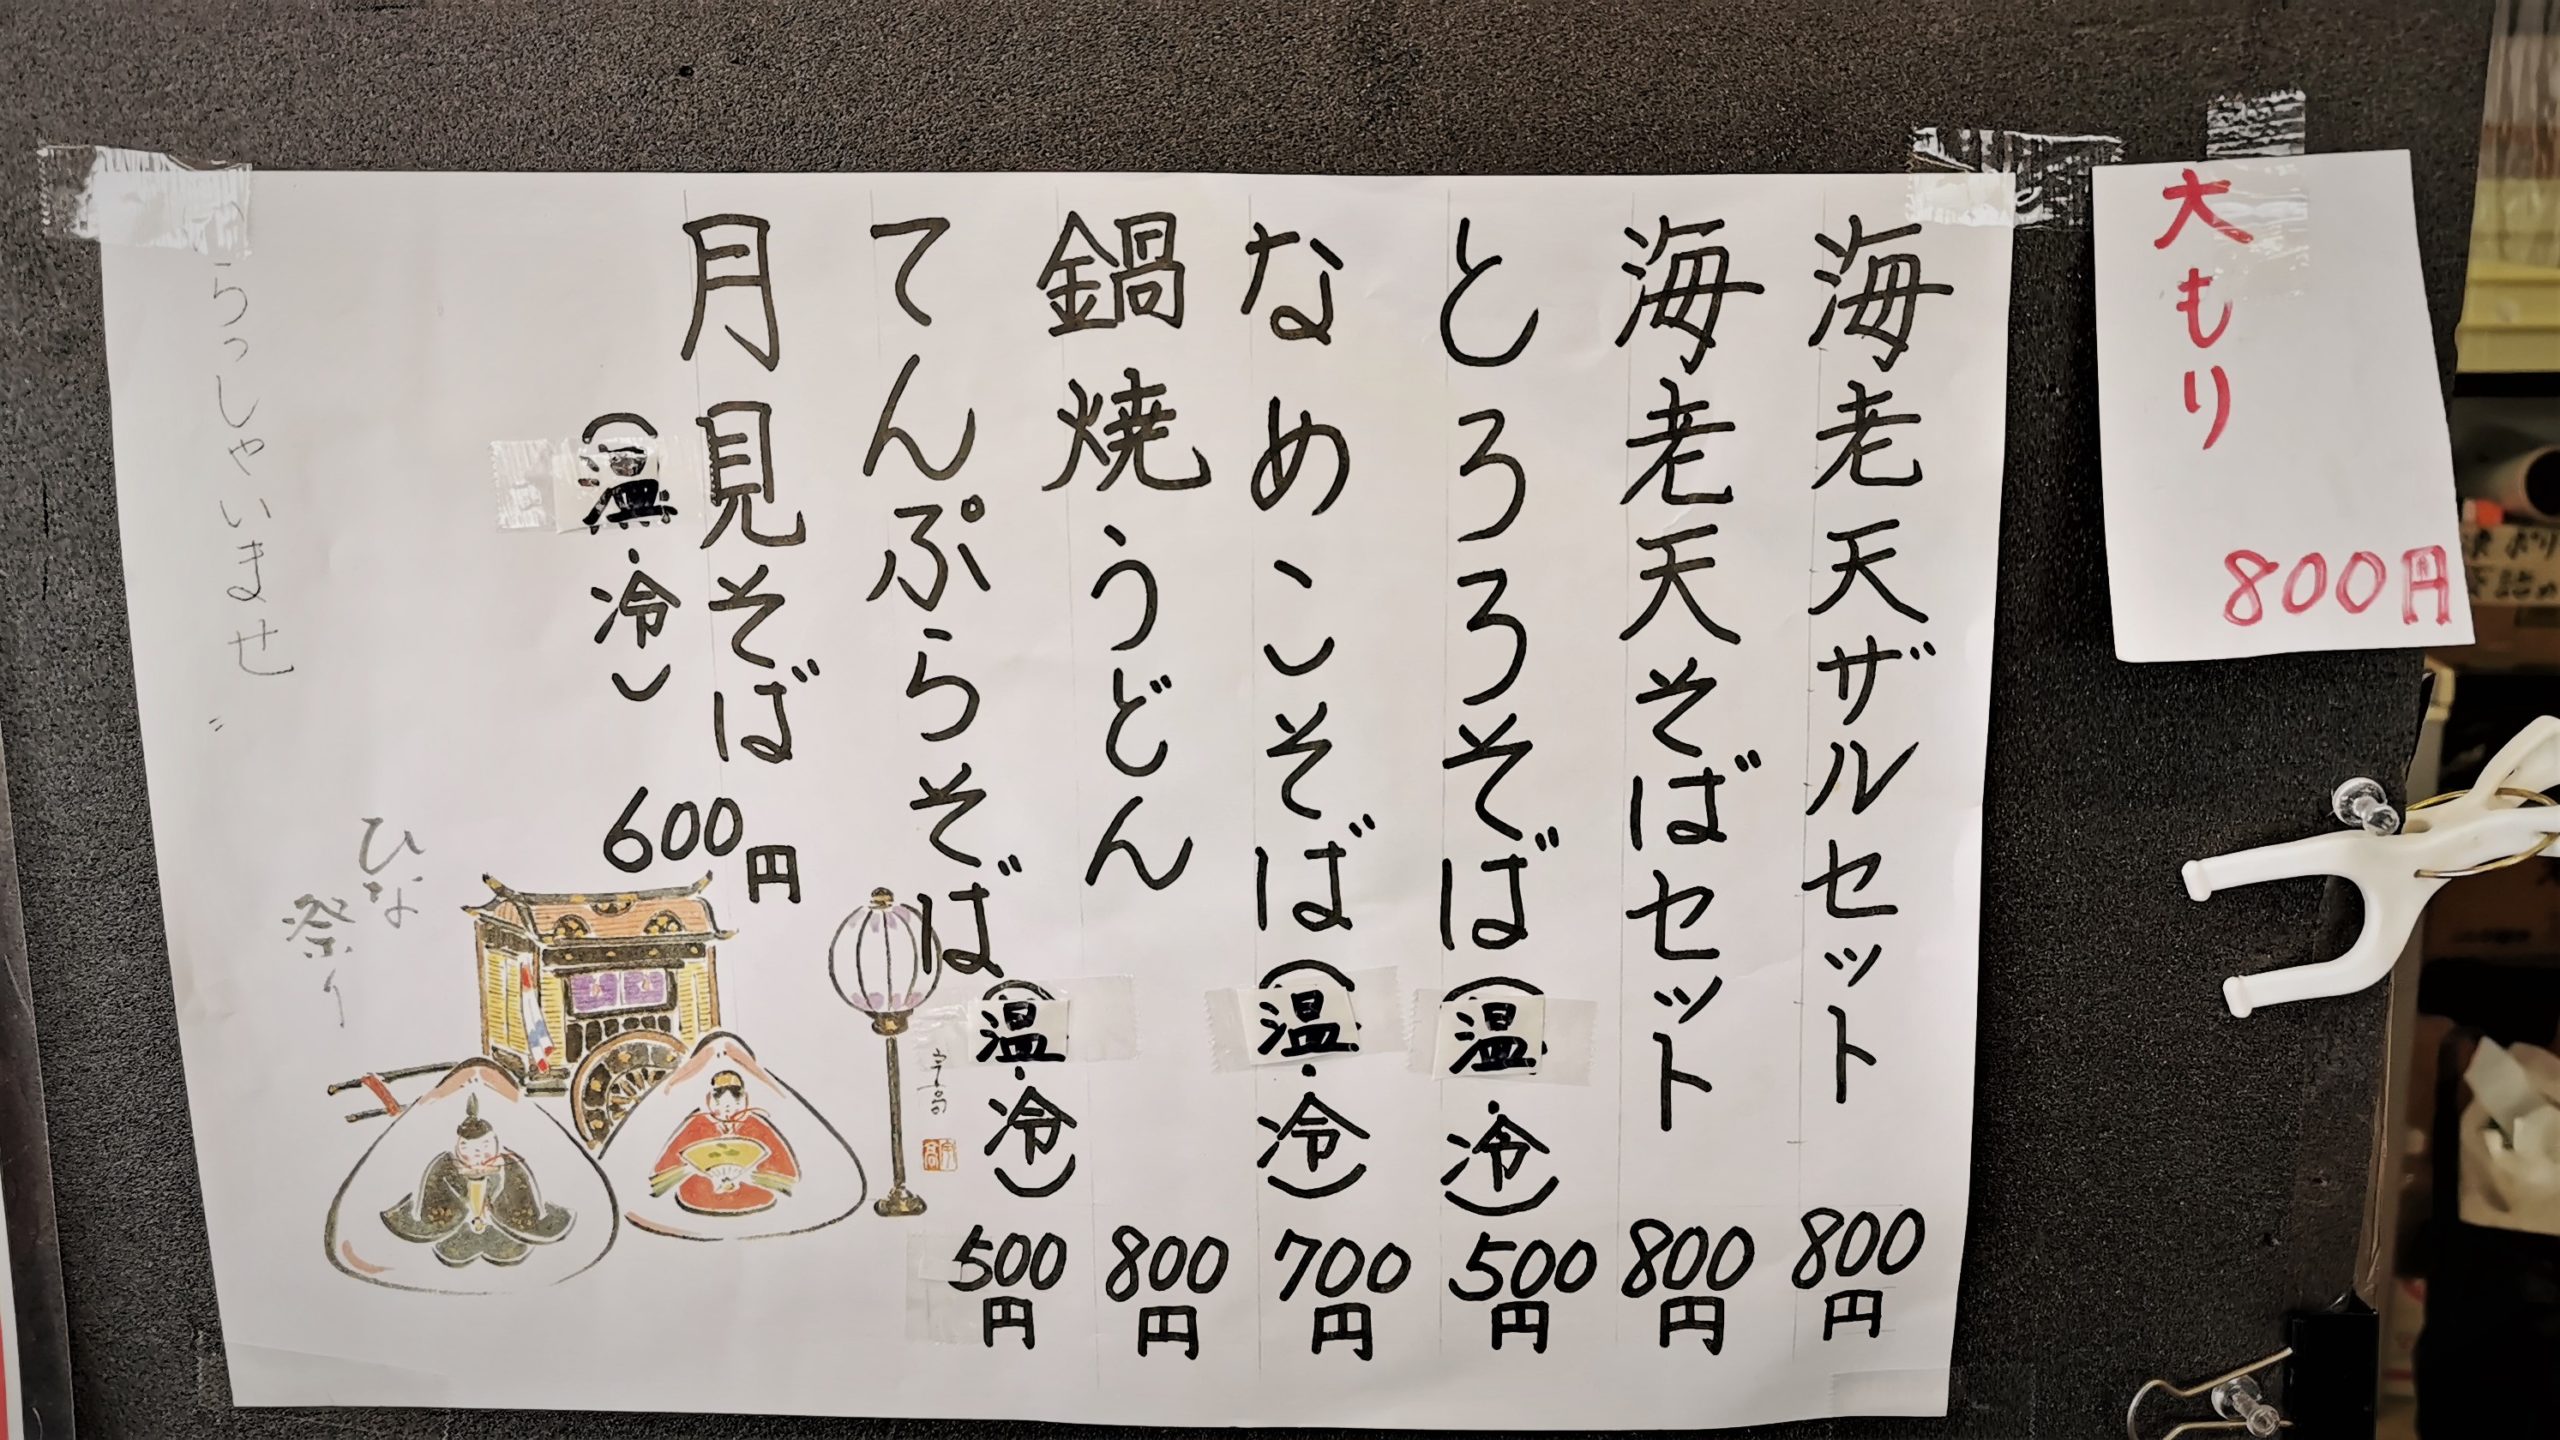 大もり
800円
海老天ザルセット 800円
海老天そばセット 800円
とろろそば(温・冷) 500円
なめこそば(温・冷) 700円
鍋焼うどん 800円
てんぷらそば(温・冷) 500円
月見そば 600円
(温・冷)
ひな
祭り
らっしゃいませ